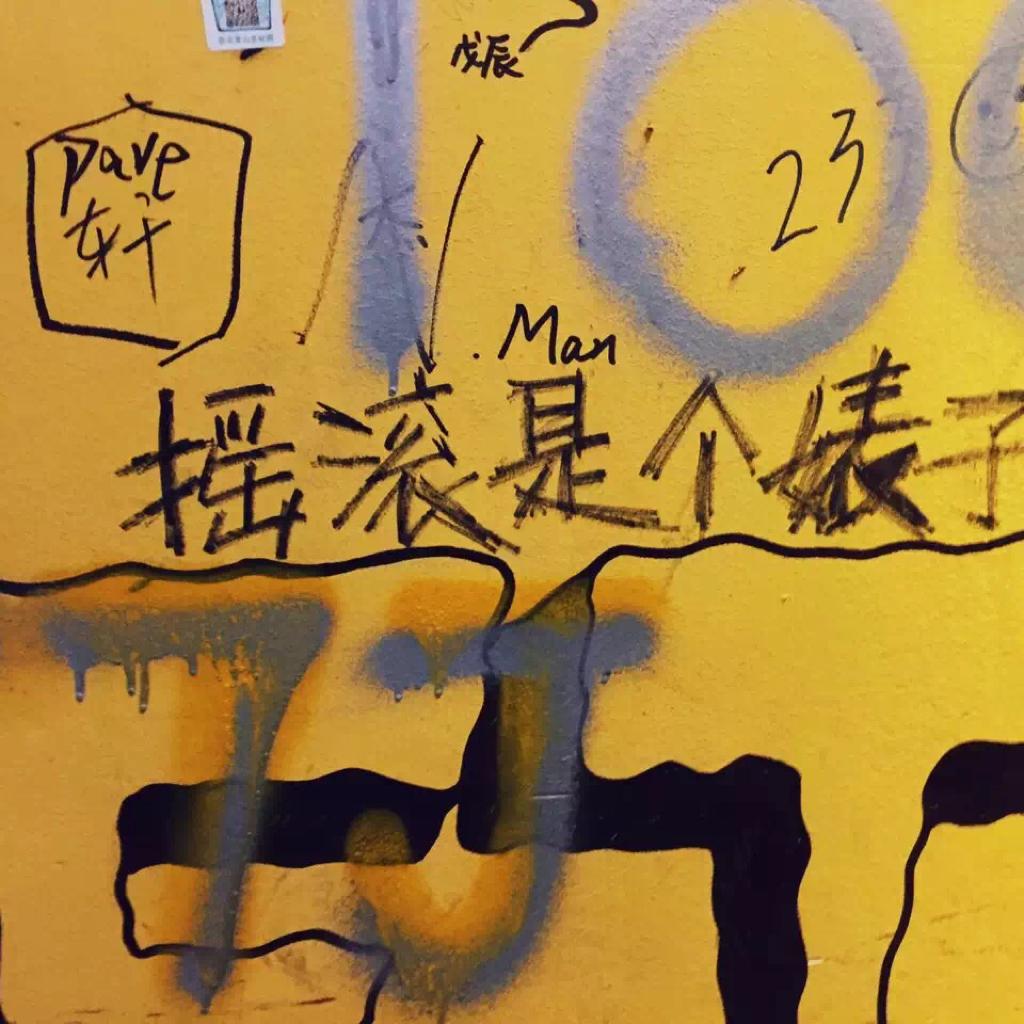 戊辰
Dave
轩
23
Man
摇滚是个婊子